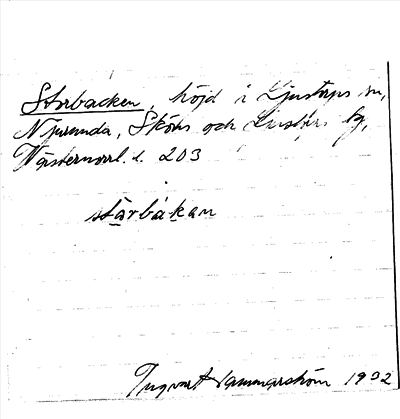 Storbacken, höjd i Ljustorps sn,
Njurunda, Sköns och Ljustorps tg,
Västernorrl. l. 203
stårbakan
Ingvar Hammarström 1932